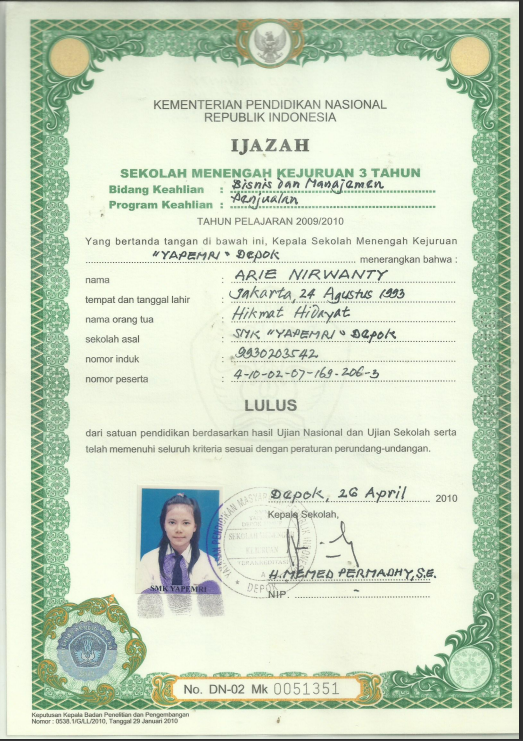 KEMENTERIAN PENDIDIKAN NASIONAL
REPUBLIK INDONESIA
IJAZAH
SEKOLAH MENENGAH KEJURUAN 3 TAHUN
Bidang Keahlian : Bisnis dan Manajemen
Program Keahlian : Penjualan
TAHUN PELAJARAN 2009/2010
Yang bertanda tangan di bawah ini, Kepala Sekolah Menengah Kejuruan
"YAPEMRI" Depok menerangkan bahwa :
nama : ARIE NIRWANTY
tempat dan tanggal lahir : Jakarta, 24 Agustus 1993
nama orang tua : Hikmat Hidayat
sekolah asal : SMK "YAPEMRI" Depok
nomor induk : 9930203542
nomor peserta : 4-10-02-07-169-206-3
LULUS
dari satuan pendidikan berdasarkan hasil Ujian Nasional dan Ujian Sekolah serta
telah memenuhi seluruh kriteria sesuai dengan peraturan perundang-undangan.
Depok, 26 April 2010
Kepala Sekolah,
H. MEMED PERMADHY, S.E.
NIP. -
SMK YAPEMRI
DEPOK
No. DN-02 Mk 0051351
Keputusan Kepala Badan Penelitian dan Pengembangan
Nomor : 0538.1/G/LL/2010, Tanggal 29 Januari 2010